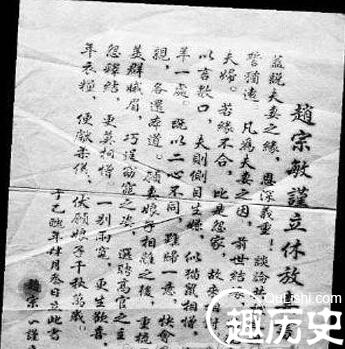 趙宗敏謹立休放
蓋説夫妻之緣，恩深義重！談論共
誓獨遠 凡為夫妻之因，前世結
夫婦。若緣不合，比是怨家，故來相對
以言數口，夫則側目生嫌，似猫鼠相憎
羊一處。既以二心不同，難歸一意，快會
親，各還本道。願妻娘子相離之後，重梳
美群娥眉 巧逞窈窕之姿，選聘高官之主
怨釋結，更莫相憎。一別兩寬，更生歡喜，
年衣糧，便獻柔儀，伏願娘子千秋萬歲
于乙酉年 月叁日立此書
趙宗
QuLiShi.com
趣历史